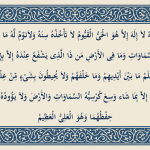 لَا إِلَهَ إِلَّا هُوَ الْحَيُّ الْقَيُّومُ لَا تَأْخُذُهُ سِنَةٌ وَلَا نَوْمٌ لَهُ مَا
السَّمَاوَاتِ وَمَا فِي الْأَرْضِ مَن ذَا الَّذِي يَشْفَعُ عِنْدَهُ إِلَّا
مَا بَيْنَ أَيْدِيهِمْ وَمَا خَلْفَهُمْ وَلَا يُحِيطُونَ بِشَيْءٍ مِنْ
إِلَّا بِمَا شَاءَ وَسِعَ كُرْسِيُّهُ السَّمَاوَاتِ وَالْأَرْضَ وَلَا يَؤُودُهُ
حِفْظُهُمَا وَهُوَ الْعَلِيُّ الْعَظِيمُ